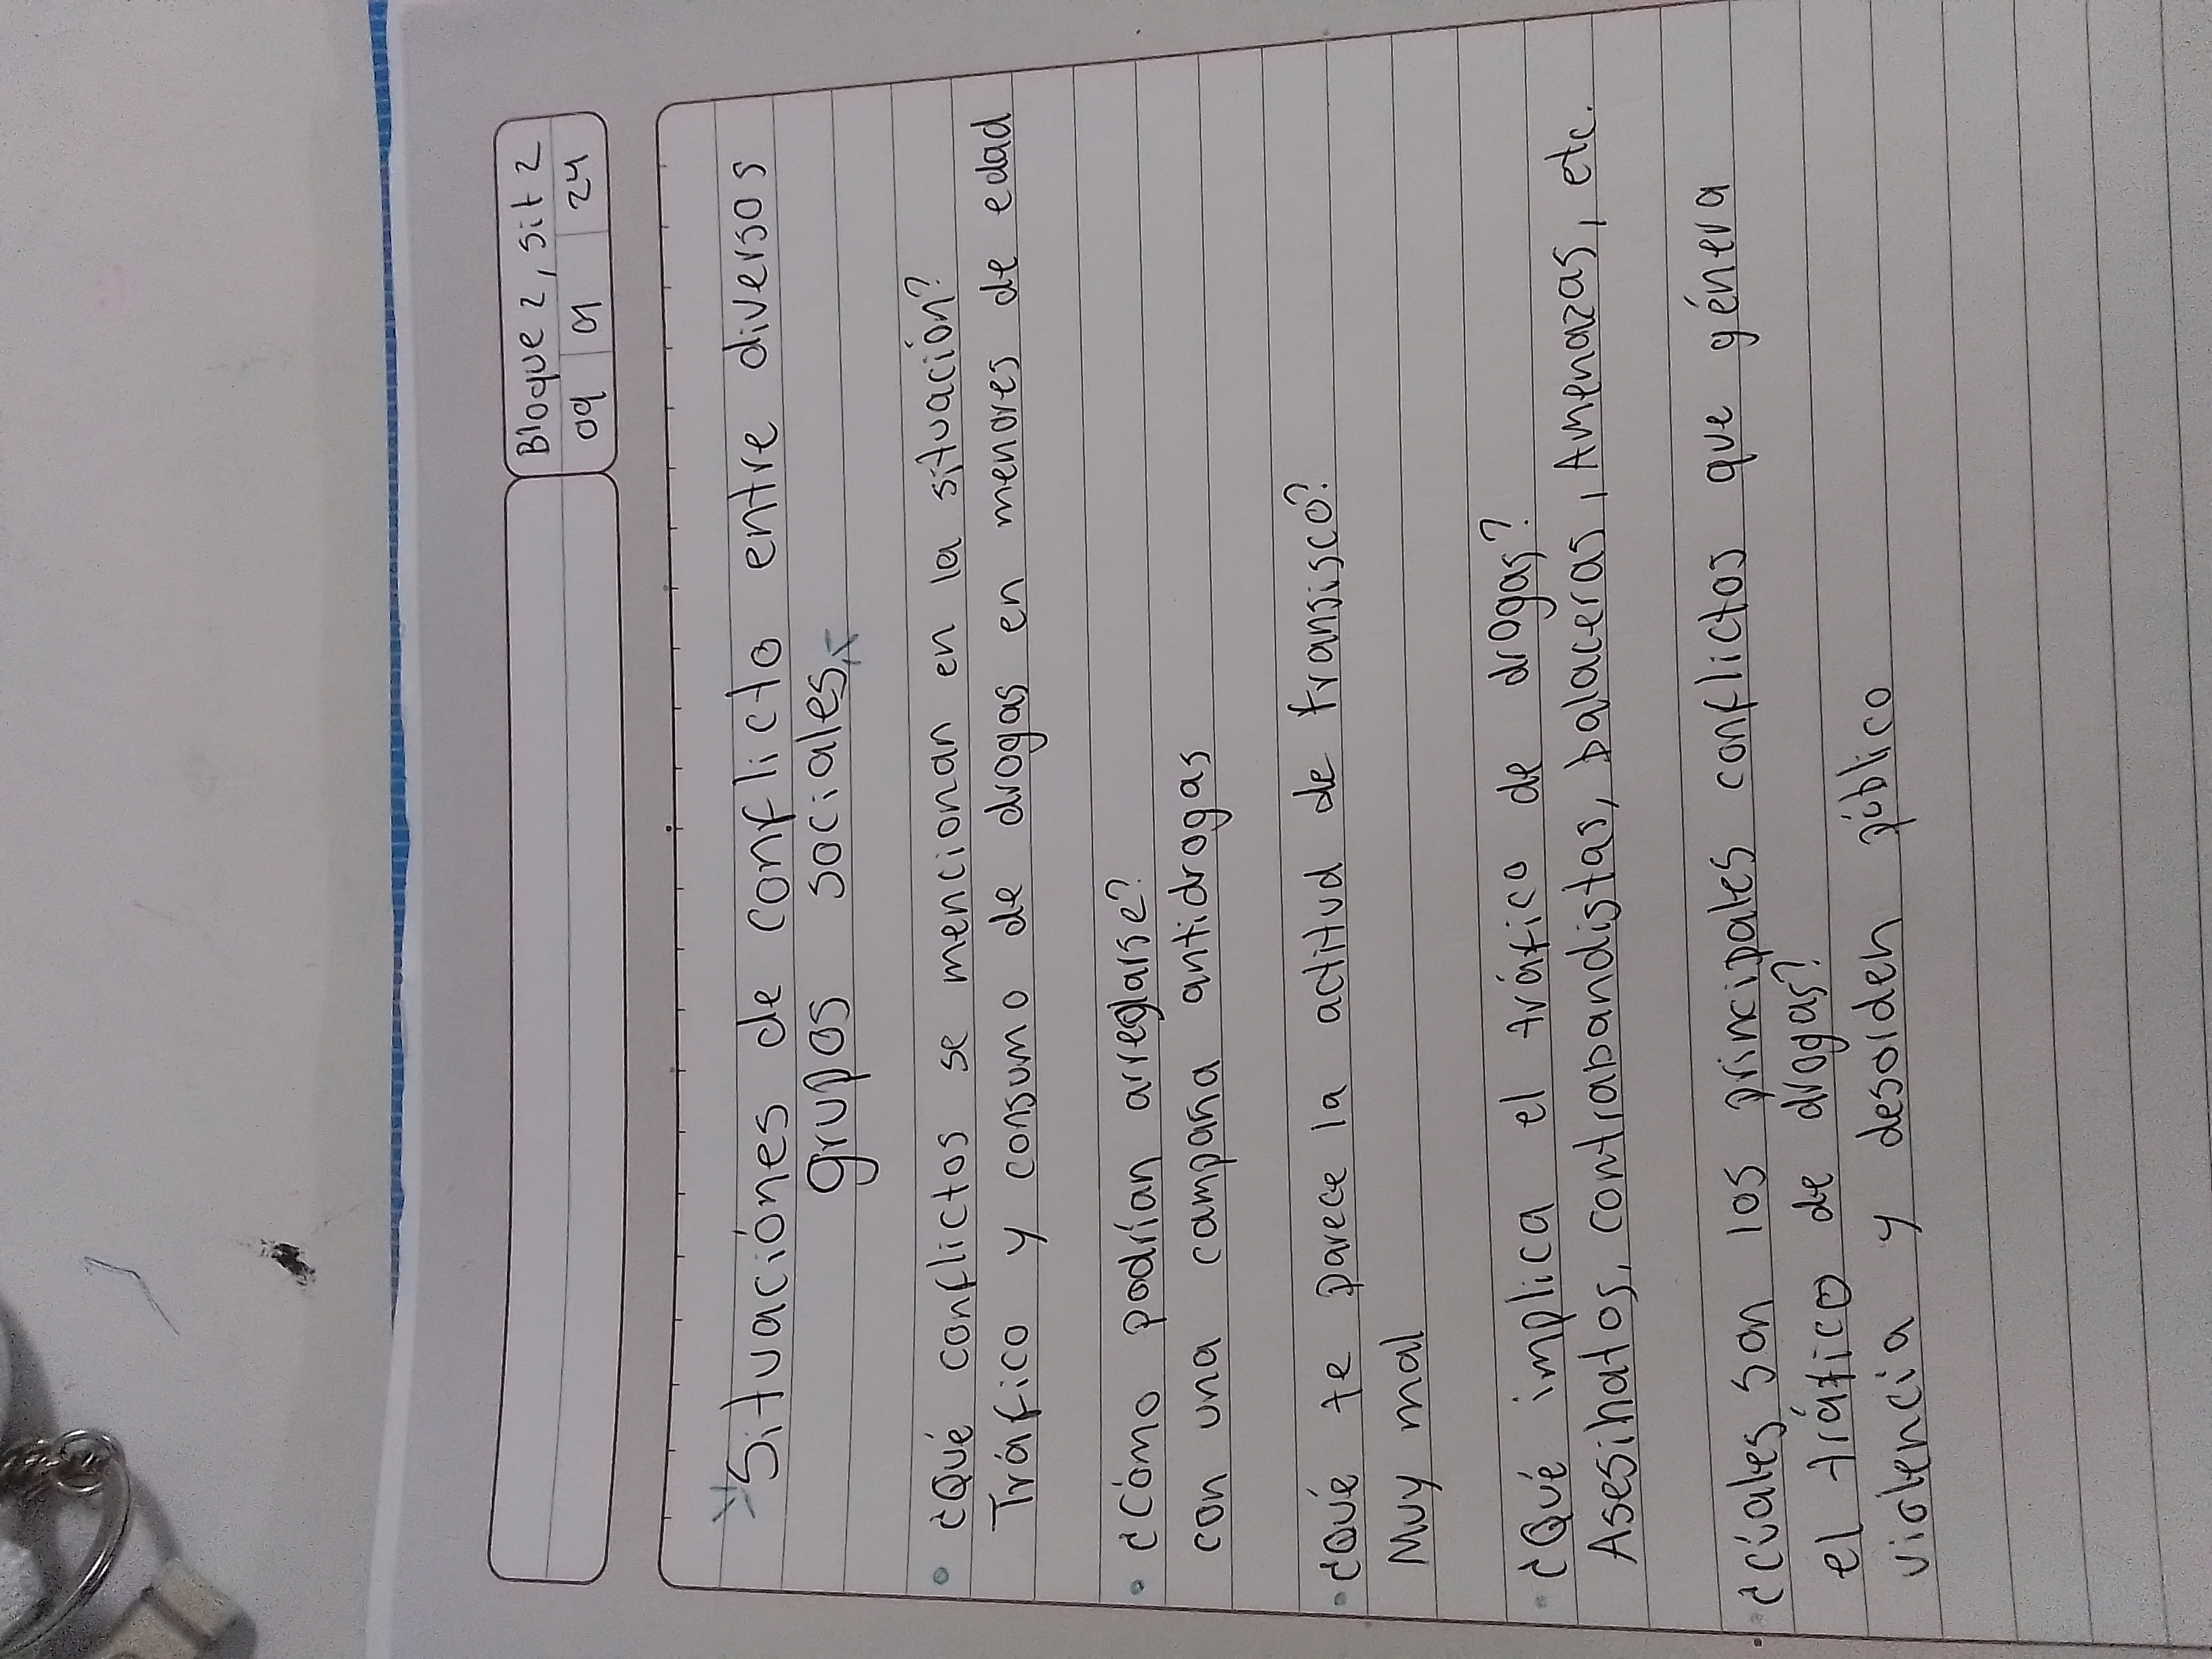 Bloque 2, sit 2
09 01 24
Situaciónes de conflicto entre diversos
grupos sociales
¿Qué conflictos se mencionan en la situación?
Tráfico y consumo de drogas en menores de edad
¿Cómo podrían arreglarse?
con una campaña antidrogas
¿Qué te parece la actitud de fransisco?
Muy mal
¿Qué implica el tráfico de drogas?
Asesinatos, contrabandistas, balaceras, Amenazas, etc.
¿Cúales son los principales conflictos que génera
el tráfico de drogas?
violencia y desorden público